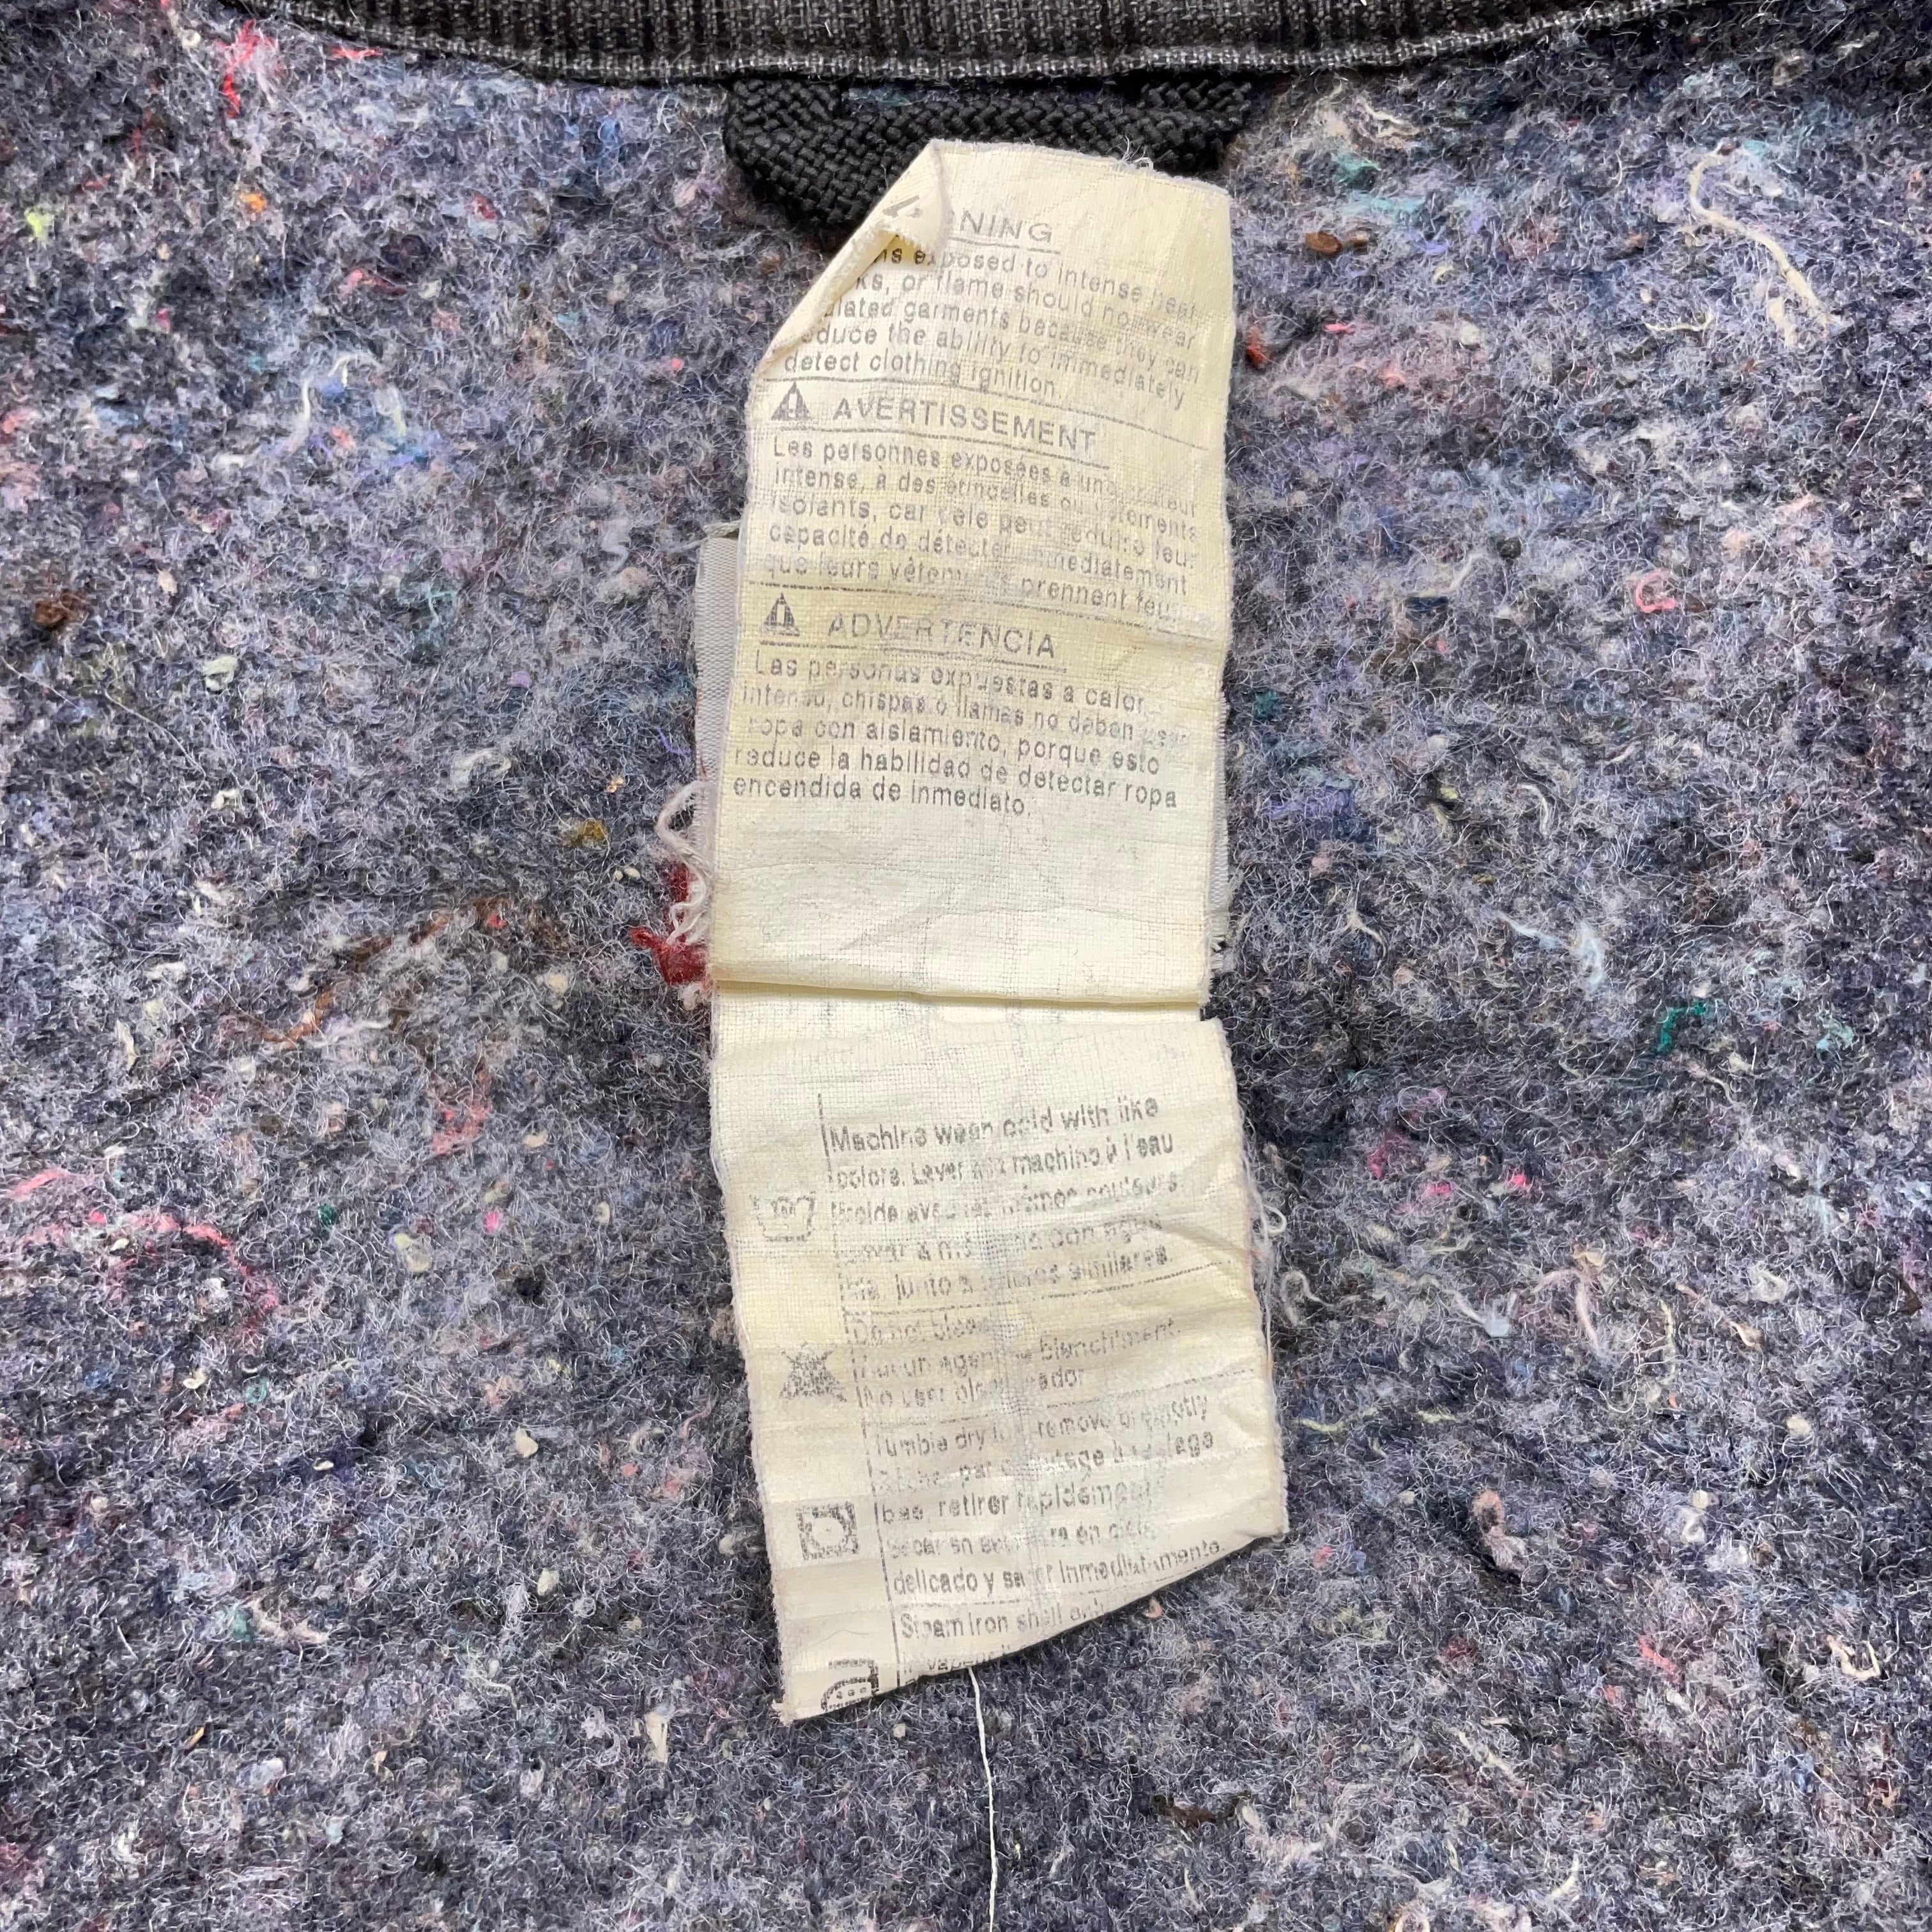 NING
exposed to intense heat
ks, or flame should not wear
ulated garments because they can
educe the ability to immediately
detect clothing ignition.
AVERTISSEMENT
Les personnes exposées à une
intense, à des étincelles ou vêtements
isolants, car cele peut réduire leur
capacité de détecter immédiatement
que leurs vêtements prennent feu
ADVERTENCIA
Las personas expuestas a calor
intenso, chispas o llamas no deben usar
ropa con aislamiento, porque esto
reduce la habilidad de detectar ropa
encendida de inmediato.
Machine wash cold with like
colors. Laver machine à l'eau
froide avec les mêmes couleurs
con agua
junto a colores similares.
Do not bleach
Aucun agent de blanchiment.
No usar blanqueador
Tumble dry remove promptly
par
bas, retirer rapidement
Secar en en ciclo
delicado y sacar inmediatamente.
Steam iron shell only
vapeur